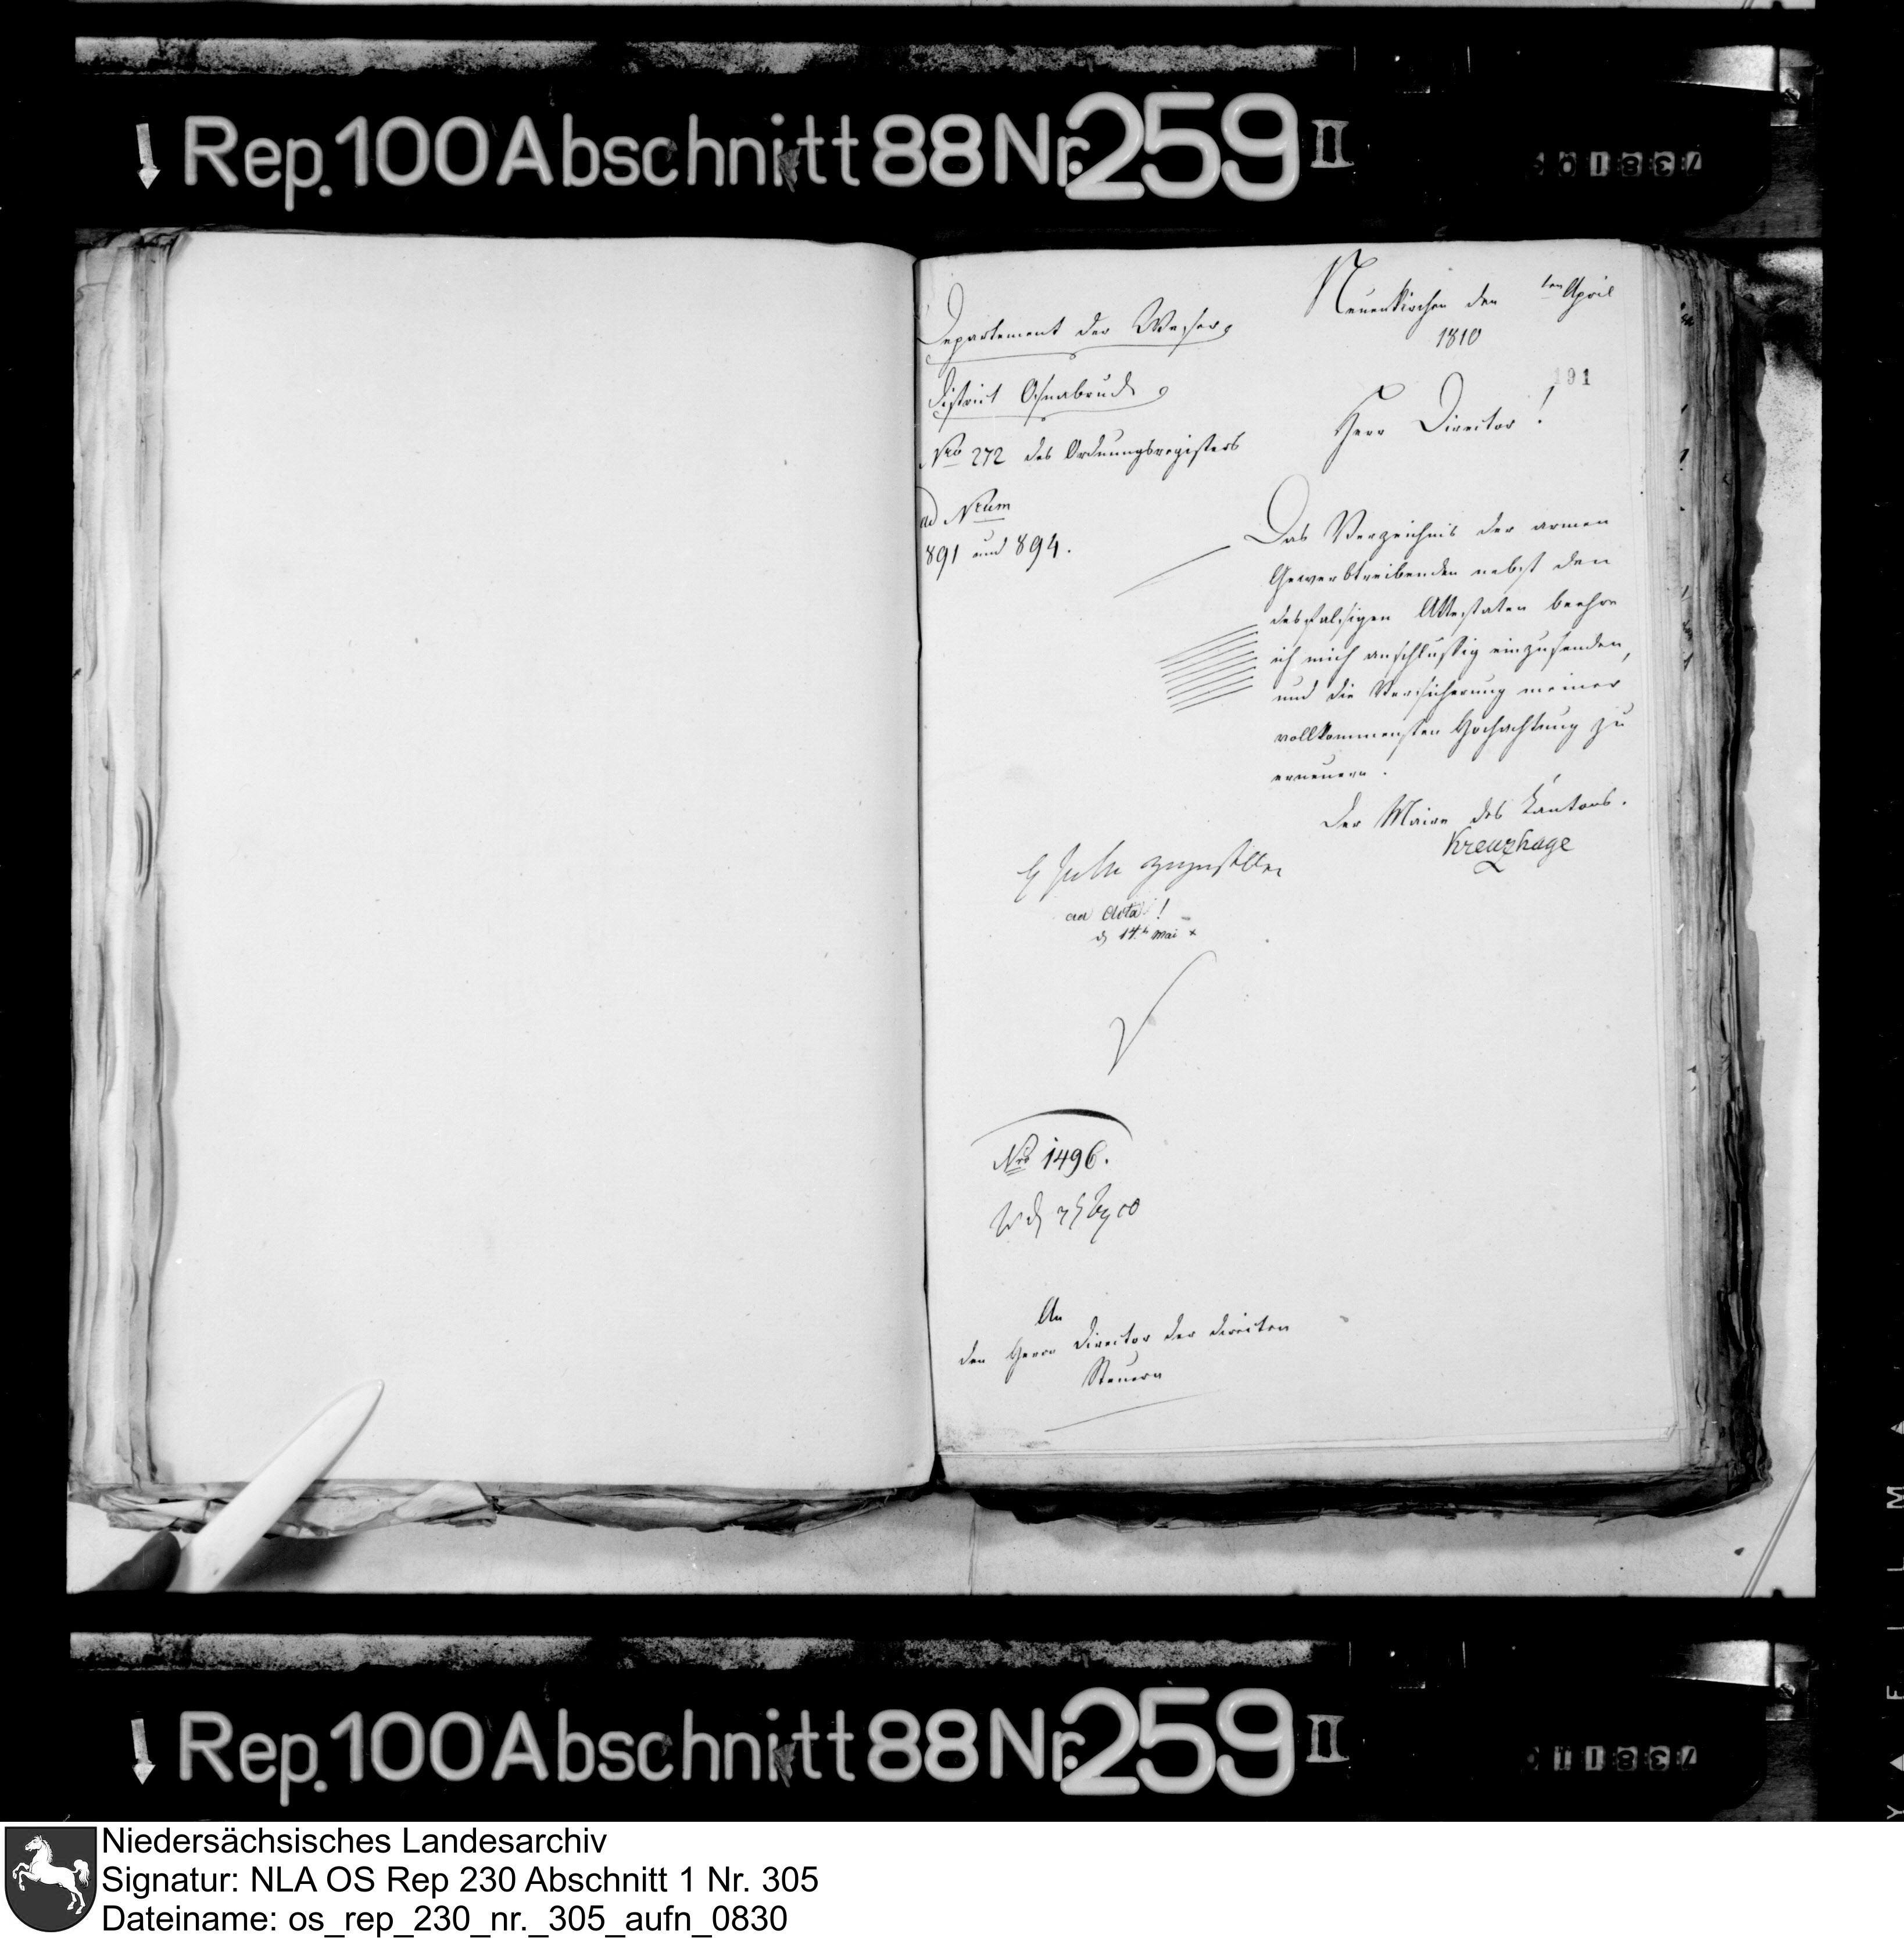 Rep. 100 Abschnitt 88 Nr. 259 II
Departement der Weser
District Osnabruck
Nro 272 des Ordnungsregisters
ad Num
891 und 894.
Neuenkirchen den ten April
1810
191
Herr Director!
Das Verzeichnis der armen
Gewerbtreibenden nebst den
desfalsigen Attestaten beehre
ich mich anschlussig einzusenden,
und die Versicherung meiner
vollkommensten Hochachtung zu
erneuern.
Der Maire des Kantons.
Kreuzhage
ad Acta!
d 14t Mai
Nro 1496.
An
den Herrn Director der directen
Steuern
Rep. 100 Abschnitt 88 Nr. 259 II
Niedersächsisches Landesarchiv
Signatur: NLA OS Rep 230 Abschnitt 1 Nr. 305
Dateiname: os_rep_230_nr._305_aufn_0830